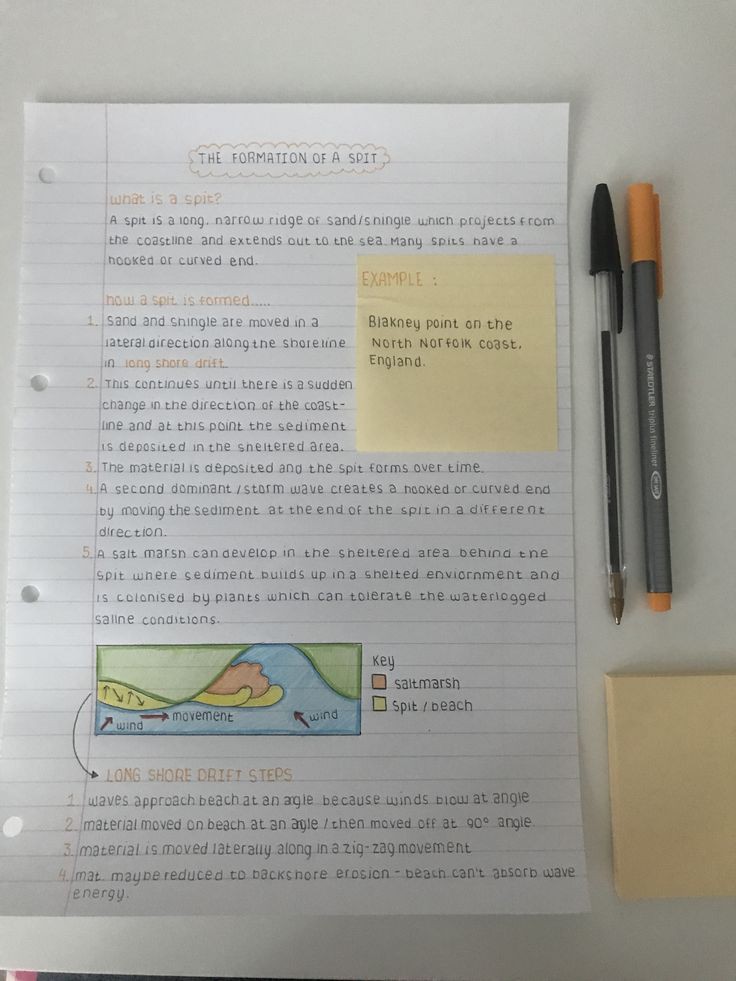 THE FORMATION OF A SPIT
what is a spit?
A spit is a long, narrow ridge of sand/shingle which projects from
the coastline and extends out to the sea. Many spits have a
hooked or curved end.
EXAMPLE :
Blakney point on the
North Norfolk coast,
England.
how a spit is formed.....
1. Sand and shingle are moved in a
lateral direction along the shoreline
in long shore drift.
2. This continues until there is a sudden
change in the direction of the coast-
line and at this point the sediment
is deposited in the sheltered area.
3. The material is deposited and the spit forms over time.
4. A second dominant/storm wave creates a hooked or curved end
by moving the sediment at the end of the spit in a different
direction.
5. A salt marsh can develop in the sheltered area behind the
spit where sediment builds up in a shelted enviornment and
is colonised by plants which can tolerate the waterlogged
saline conditions.
wind
movement
wind
Key
saltmarsh
Spit / beach
LONG SHORE DRIFT STEPS
1. waves approach beach at an angle because winds blow at angle
2. material moved on beach at an angle / then moved off at 90° angle
3. material is moved laterally along in a zig-zag movement
4. mat. may be reduced to backshore erosion - beach can't absorb wave
energy.
STAEDTLER triplus fineliner